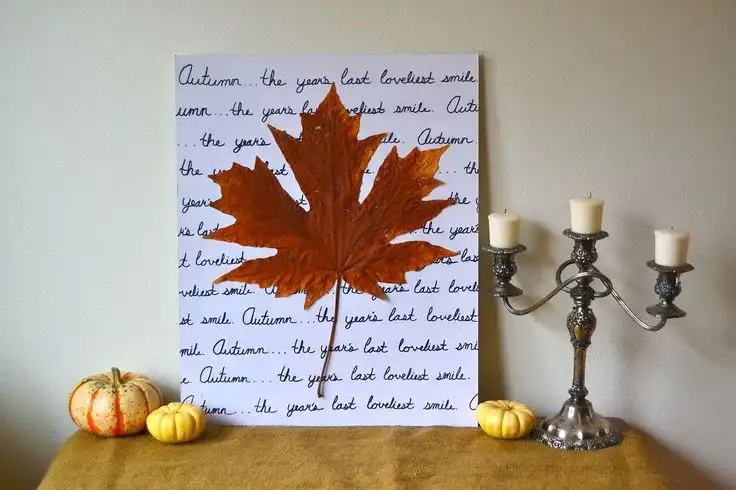 Autumn...the year's last loveliest smile.
umn...the year's veliest smile. Autu
...the year's ile. Autumn.
the
year's
last the year
t loveliest las
veliest smile. last lovel
st smile. Autumn...the year's last loveliest
mile. Autumn...the year's last loveliest smi
e. Autumn...the year's last loveliest smile.
Autumn...the year's last loveliest smile.